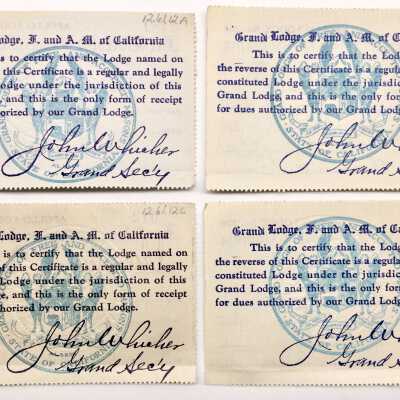 12.6/12A
Lodge, F. and A. M. of California
is to certify that the Lodge named on
of this Certificate is a regular and legally
Lodge under the jurisdiction of this
, and this is the only form of receipt
authorized by our Grand Lodge.
John Whicher
Grand Sec'y
Grand Lodge, F. and A. M. of Califor
This is to certify that the Lo
the reverse of this Certificate is a regula
constituted Lodge under the jurisdic
Grand Lodge, and this is the only for
for dues authorized by our Grand Lodg
John Whi
Grand Se
12.6/12C
Lodge, F. and A. M. of California
is to certify that the Lodge named on
of this Certificate is a regular and legally
Lodge under the jurisdiction of this
ge, and this is the only form of receipt
authorized by our Grand Lodge.
John Whicher
Grand Sec'y
Grand Lodge, F. and A. M. of Califor
This is to certify that the Lod
the reverse of this Certificate is a regular
constituted Lodge under the jurisdict
Grand Lodge, and this is the only form
for dues authorized by our Grand Lodge
John Whi
Grand Se